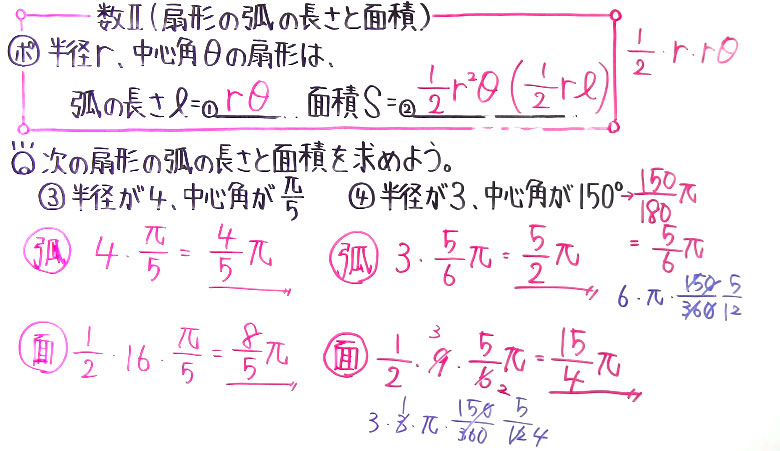 数Ⅱ(扇形の弧の長さと面積)
ポ 半径r、中心角θの扇形は、
弧の長さℓ=① rθ 面積S=② 1/2 r²θ (1/2 rℓ)
1/2・r・rθ
次の扇形の弧の長さと面積を求めよう。
③半径が4、中心角がπ/5 ④半径が3、中心角が150°→150/180 π
= 5/6 π
弧 4・π/5 = 4/5 π
弧 3・5/6 π = 5/2 π
6・π・150/360 5/12
面 1/2・16・π/5 = 8/5 π
面 1/2・9・5/6 π = 15/4 π
3 2
3・3・π・150/360 5/12 4
1